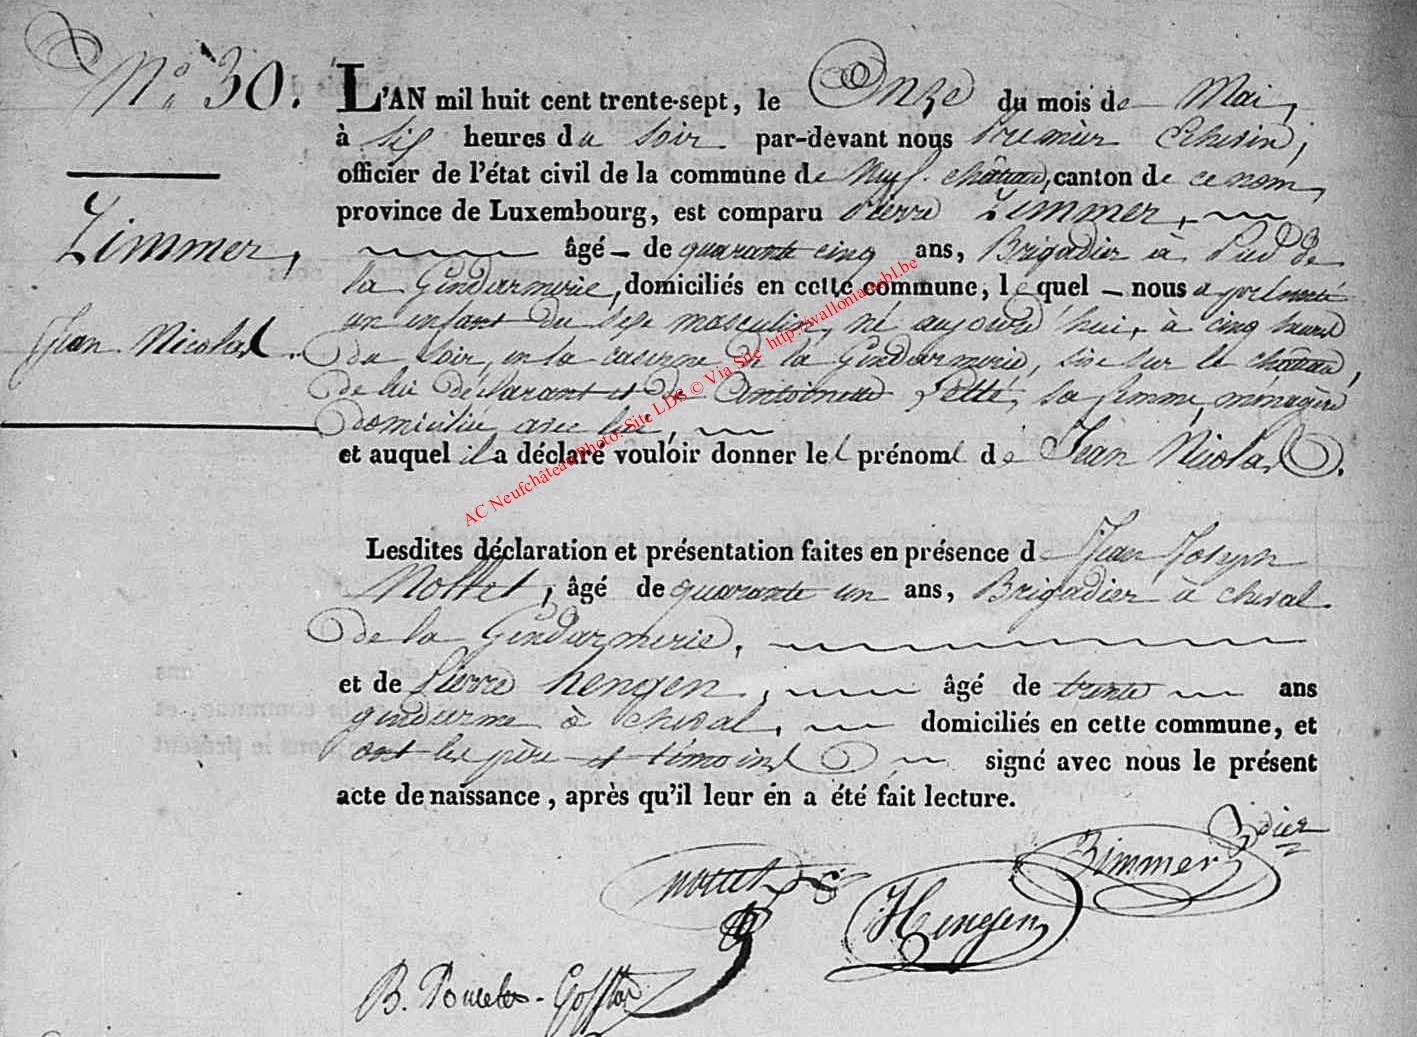 N.° 30.
L'AN mil huit cent trente-sept, le Onze du mois de Mai,
à six heures du soir par-devant nous Premier Echevin,
officier de l'état civil de la commune de Neufchâteau, canton de ce nom,
province de Luxembourg, est comparu Pierre Zimmer,
Zimmer,
âgé de quarante cinq ans, Brigadier à Pied de
la Gendarmerie, domiciliés en cette commune, lequel nous a présenté
un enfant du sexe masculin, né aujourd'hui, à cinq heures
Jean Nicolas.
du soir, en la caserne de la Gendarmerie, sise sur le château,
de lui déclarant et de Antoinette sa femme, ménagère
domiciliée avec lui,
et auquel il a déclaré vouloir donner les prénoms de Jean Nicolas.
AC Neufchâteau Photo: Site LDS © Via Site http://wallonia-asbl.be
Lesdites déclaration et présentation faites en présence de Jean Joseph
Nottet, âgé de quarante un ans, Brigadier à cheval
de la Gendarmerie,
et de Pierre hengen, âgé de trente ans
gendarme à cheval, domiciliés en cette commune, et
ont les père et témoins signé avec nous le présent
acte de naissance, après qu'il leur en a été fait lecture.
Zimmer Bdier
nottet
Hengen
B. Poncelet-